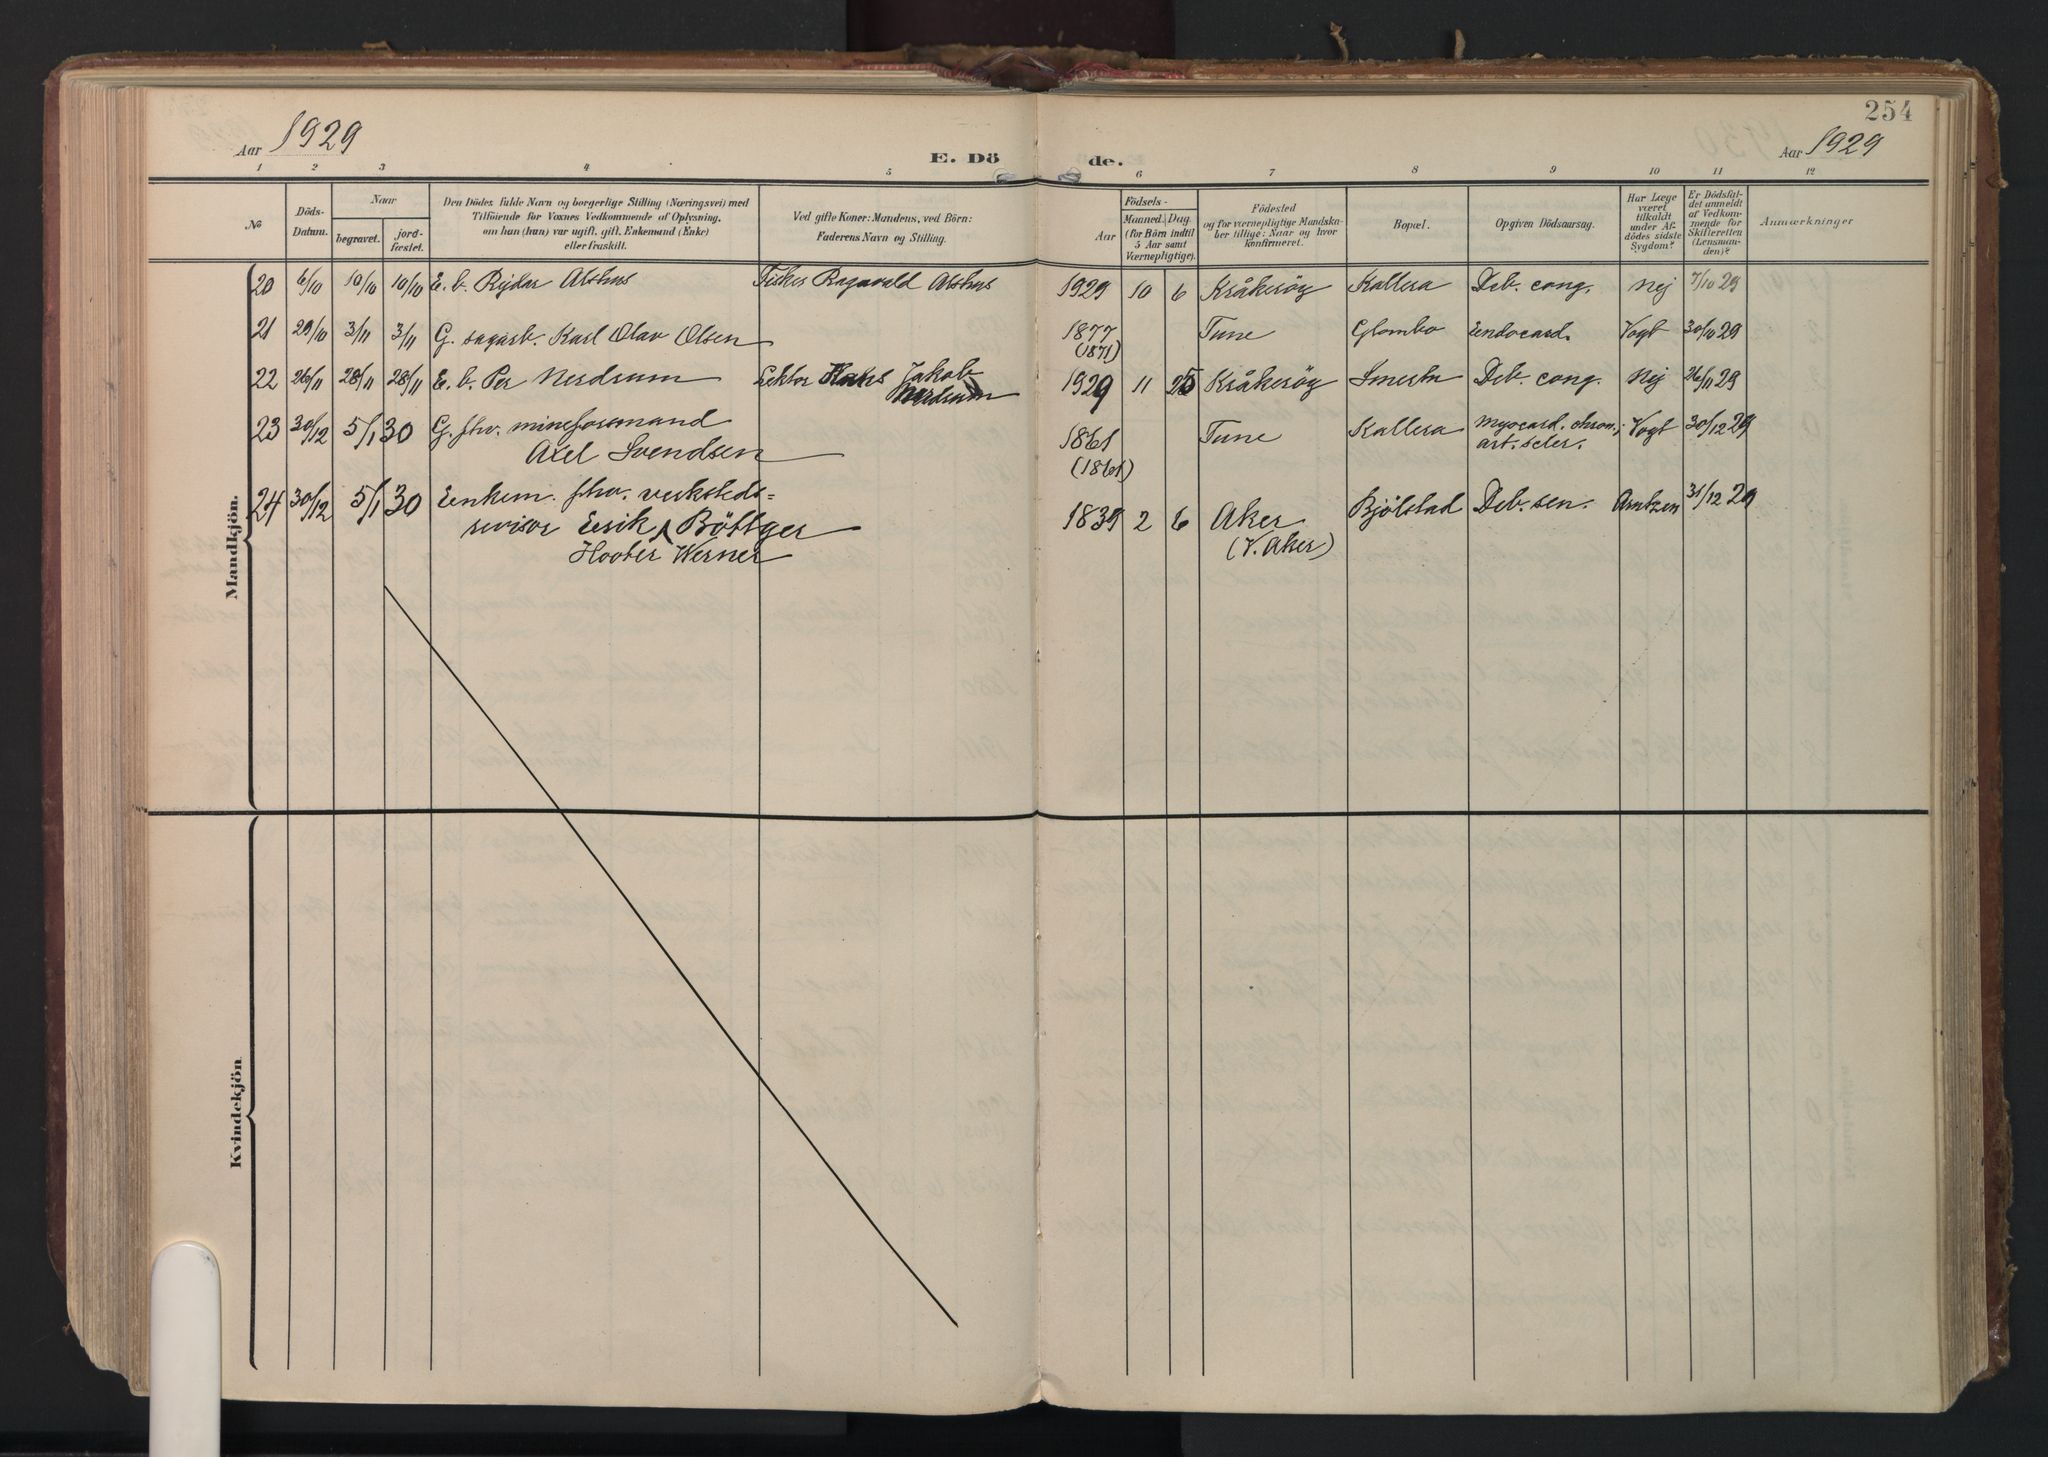 254
Aar 1929
E. Dö de.
Aar 1929
1 2 3 4 5 6 7 8 9 10 11 12
No
Döds-Datum.
Naar
begravet.
jord-fæstet.
Den Dödes fulde Navn og borgerlige Stilling (Næringsvei) med
Tilföiende for Voxnes Vedkommende af Oplysning,
om han (hun) var ugift, gift, Enkemand (Enke)
eller fraskilt.
Ved gifte Koner: Mandens, ved Börn:
Faderens Navn og Stilling.
Födsels-
Aar
Maaned. Dag.
(for Börn indtil
5 Aar samt
Værnepligtige).
Födested
og for værnepligtige Mandska-
ber tillige: Naar og hvor
konfirmeret.
Bopæl.
Opgiven Dödsaarsag.
Har Læge
været
tilkaldt
under Af-
dödes sidste
Sygdom?
Er Dödsfal-
det anmeldt
af Vedkom-
mende for
Skifteretten
(Lensman-
den)?
Anmærkninger
Mandkjön.
20 6/10 10/10 10/10 E. b. Rejdar Alshus Fisker Ragnvald Alshus 1929 10 6 Kråkeröy Kallera Deb. cong. Nej 7/10 29
21 29/10 3/11 3/11 G. sagarb. Karl Olav Olsen 1877 Tune Glombo Endocard. Vogt 30/10 29
(1871)
22 26/11 28/11 28/11 E. b. Per Nerdrum Lektor Hans Jakob 1929 11 25 Kråkeröy Smertu Deb. cong. Nej 26/11 29
Nerdrum
23 30/12 5/1 30 G. fhv. mineformand 1861 Tune Kallera Myocard. chron., Vogt 30/12 29
Axel Svendsen (1861) art. scler.
24 30/12 5/1 30 Enkem. fhv. verksteds-
revisor Eerik Böttger 1839 2 6 Aker Bjölstad Deb. sen. Arntzen 31/12 29
Werner (V. Aker)
Kvindekjön